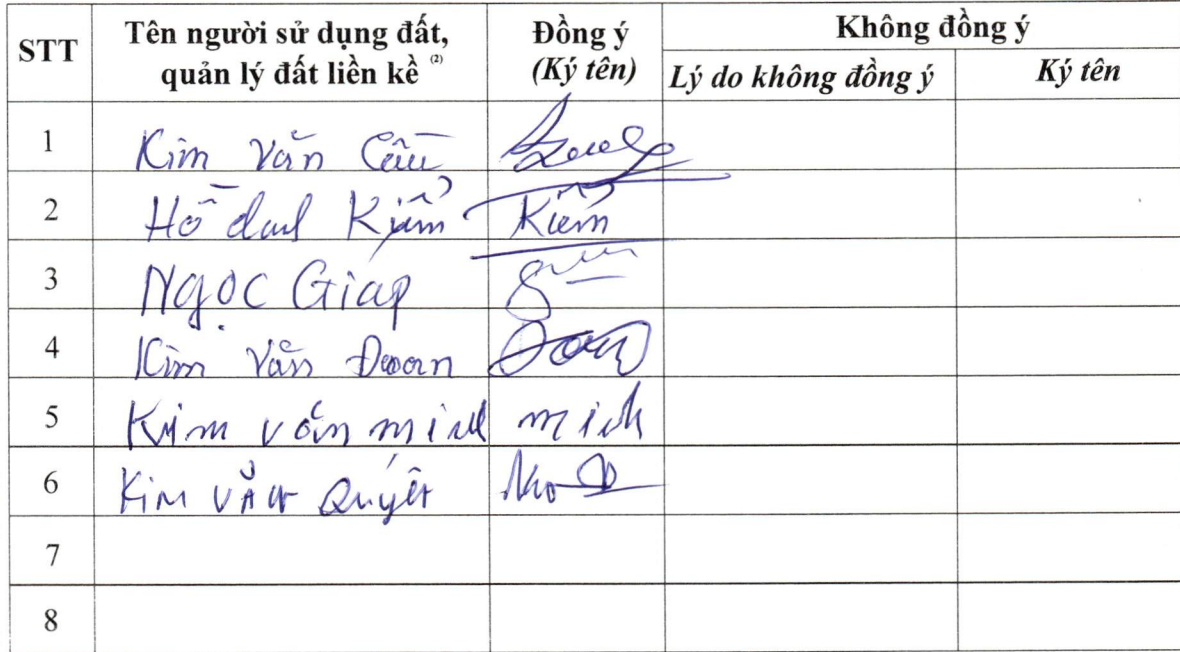 STT Tên người sử dụng đất, quản lý đất liền kề ⁽²⁾ Đồng ý (Ký tên) Không đồng ý
Lý do không đồng ý Ký tên
1 Kim Văn Cầu
2 Hồ Kiểm Kiểm
3 Ngọc Giap
4 Kim Văn Đoan
5 Kim văn minh minh
6 Kim Văn Quyết
7
8